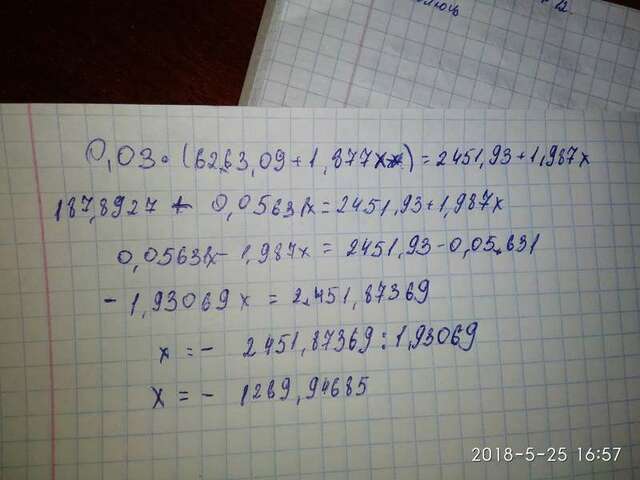 0,03·(6263,09+1,877x)=2451,93+1,987x
187,8927 + 0,05631x=2451,93+1,987x
0,05631x-1,987x=2451,93-0,05631
-1,93069x=2451,87369
x=- 2451,87369:1,93069
x=- 1269,94685
2018-5-25 16:57